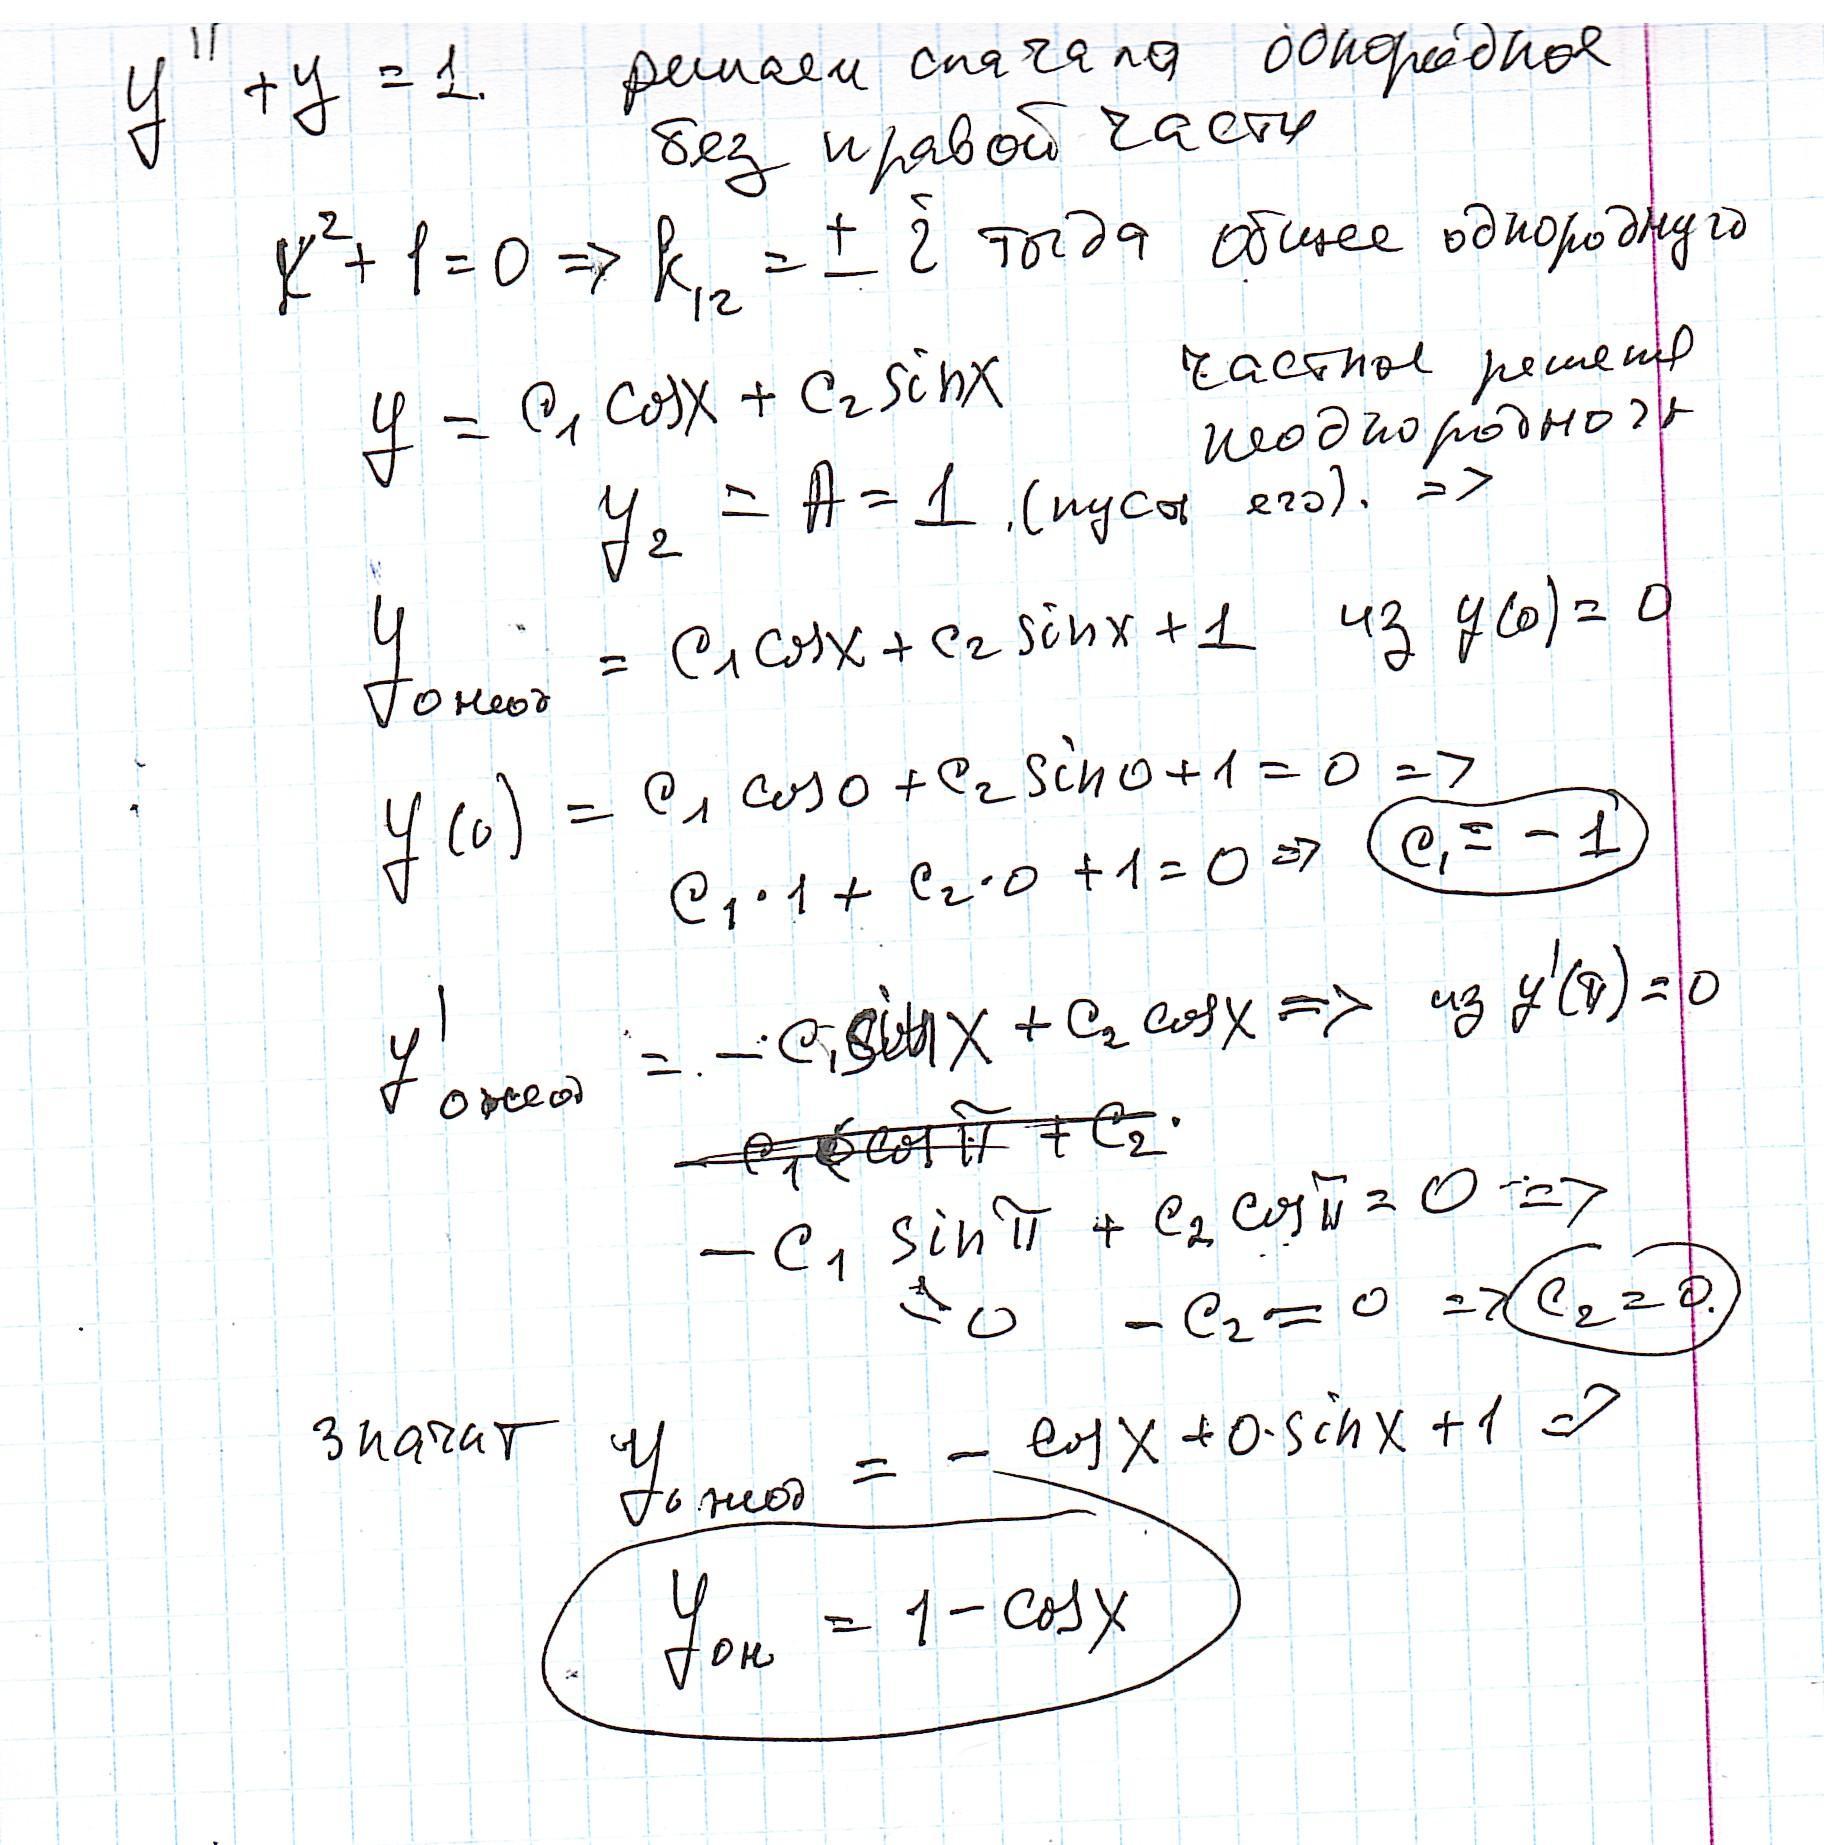 y'' + y = 1. решаем сначала однородное
без правой части
k² + 1 = 0 => k₁₂ = ± i тогда общее однородного
y = c₁ cosx + c₂ sinx частное решение
неоднородного
y₂ = A = 1 . (пусть его). =>
y = c₁ cosx + c₂ sinx + 1 из y(0) = 0
y(0) = c₁ cos0 + c₂ sin0 + 1 = 0 =>
c₁·1 + c₂·0 + 1 = 0 => c₁ = -1
y' = -c₁sinx + c₂ cosx => из y'(π) = 0
- c₁ cosπ + c₂·
- c₁ sinπ + c₂ cosπ = 0 =>
= 0 - c₂ = 0 => c₂ = 0.
значит y = - cosx + 0·sinx + 1 =>
yон = 1 - cosx